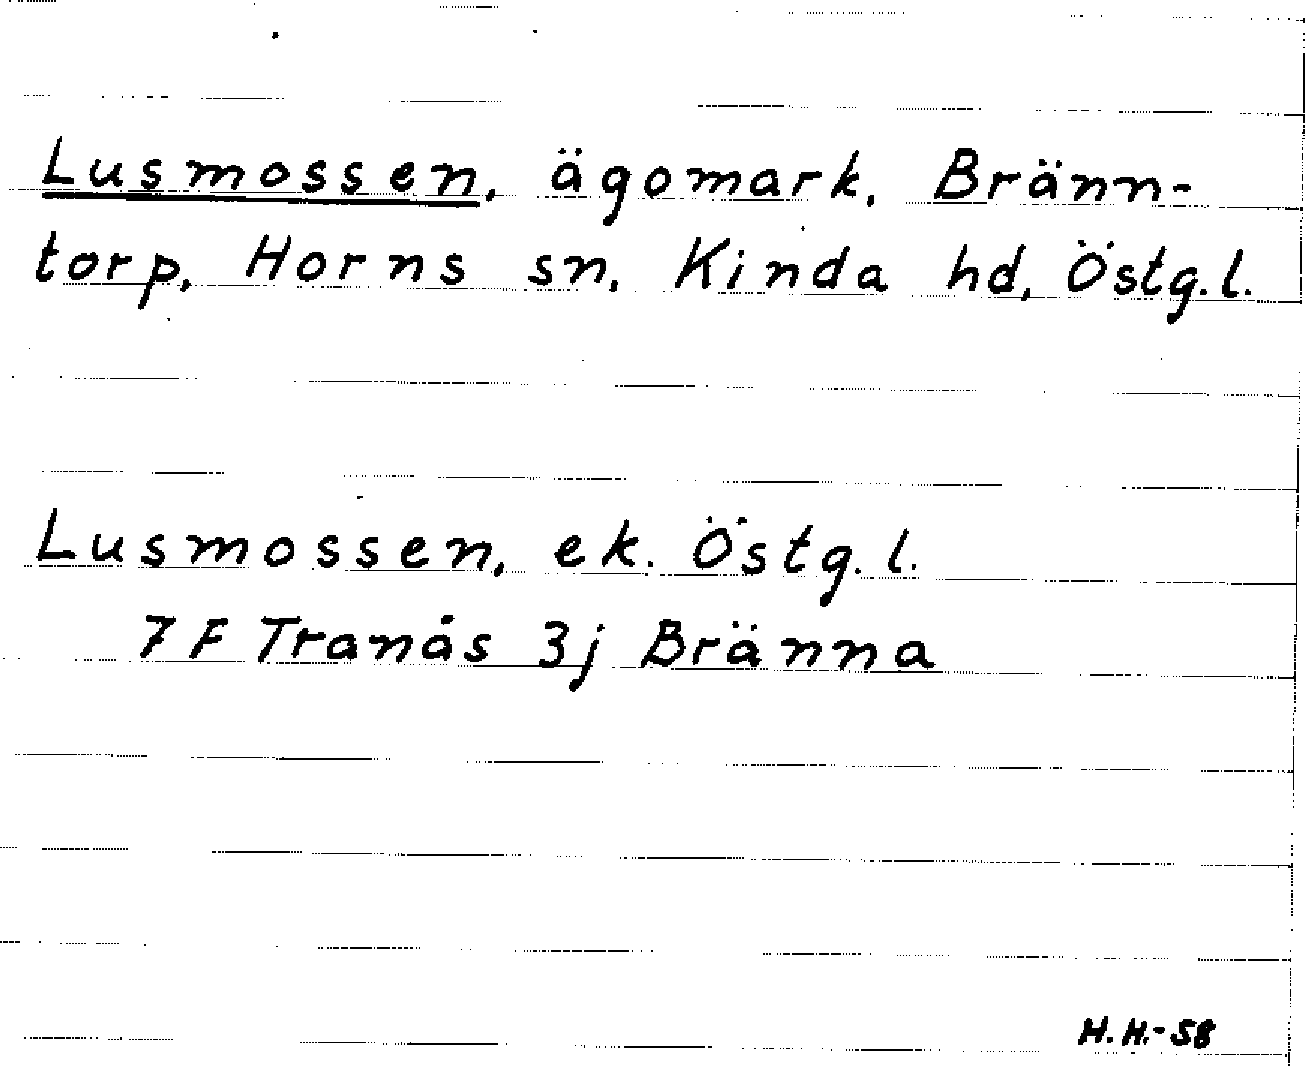 Lusmossen, ägomark, Bränn-
torp, Horns sn, Kinda hd, Östg.l.
Lusmossen, ek. Östg.l.
7 F Tranås 3j Bränna
H.H.-58